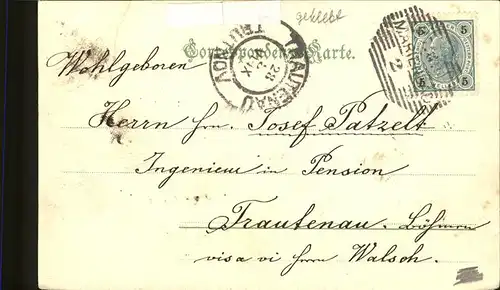 geklebt
Correspondenz-Karte.
TRAUTENAU
5 5
Wohlgeboren
Herrn Hrn. Josef Patzelt
Ingenieur in Pension
Trautenau. Böhmen
visa vi Herrn Walsch.